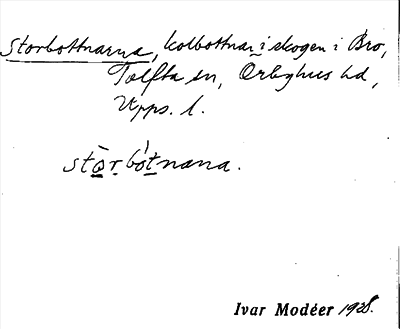 Storbottnarna, kolbottnar i skogen i Bro,
Tolfta sn, Örbyhus hd,
Upps. l.
stọ̀ṛbótnana.
Ivar Modéer 1928.